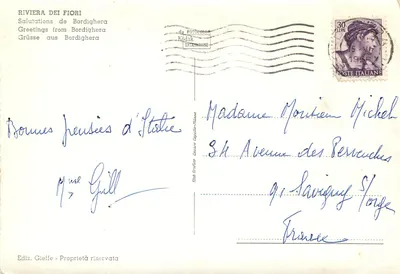 RIVIERA DEI FIORI
Salutations de Bordighera
Greetings from Bordighera
Grüsse aus Bordighera
Kodak
30
POSTE ITALIANE
Bonnes pensées d'Italie
Mme Gill
Madame Monsieur Michel
34 Avenue des Perruches
91 Savigny s/
orge
France
Ediz. Gielle - Proprietà riservata